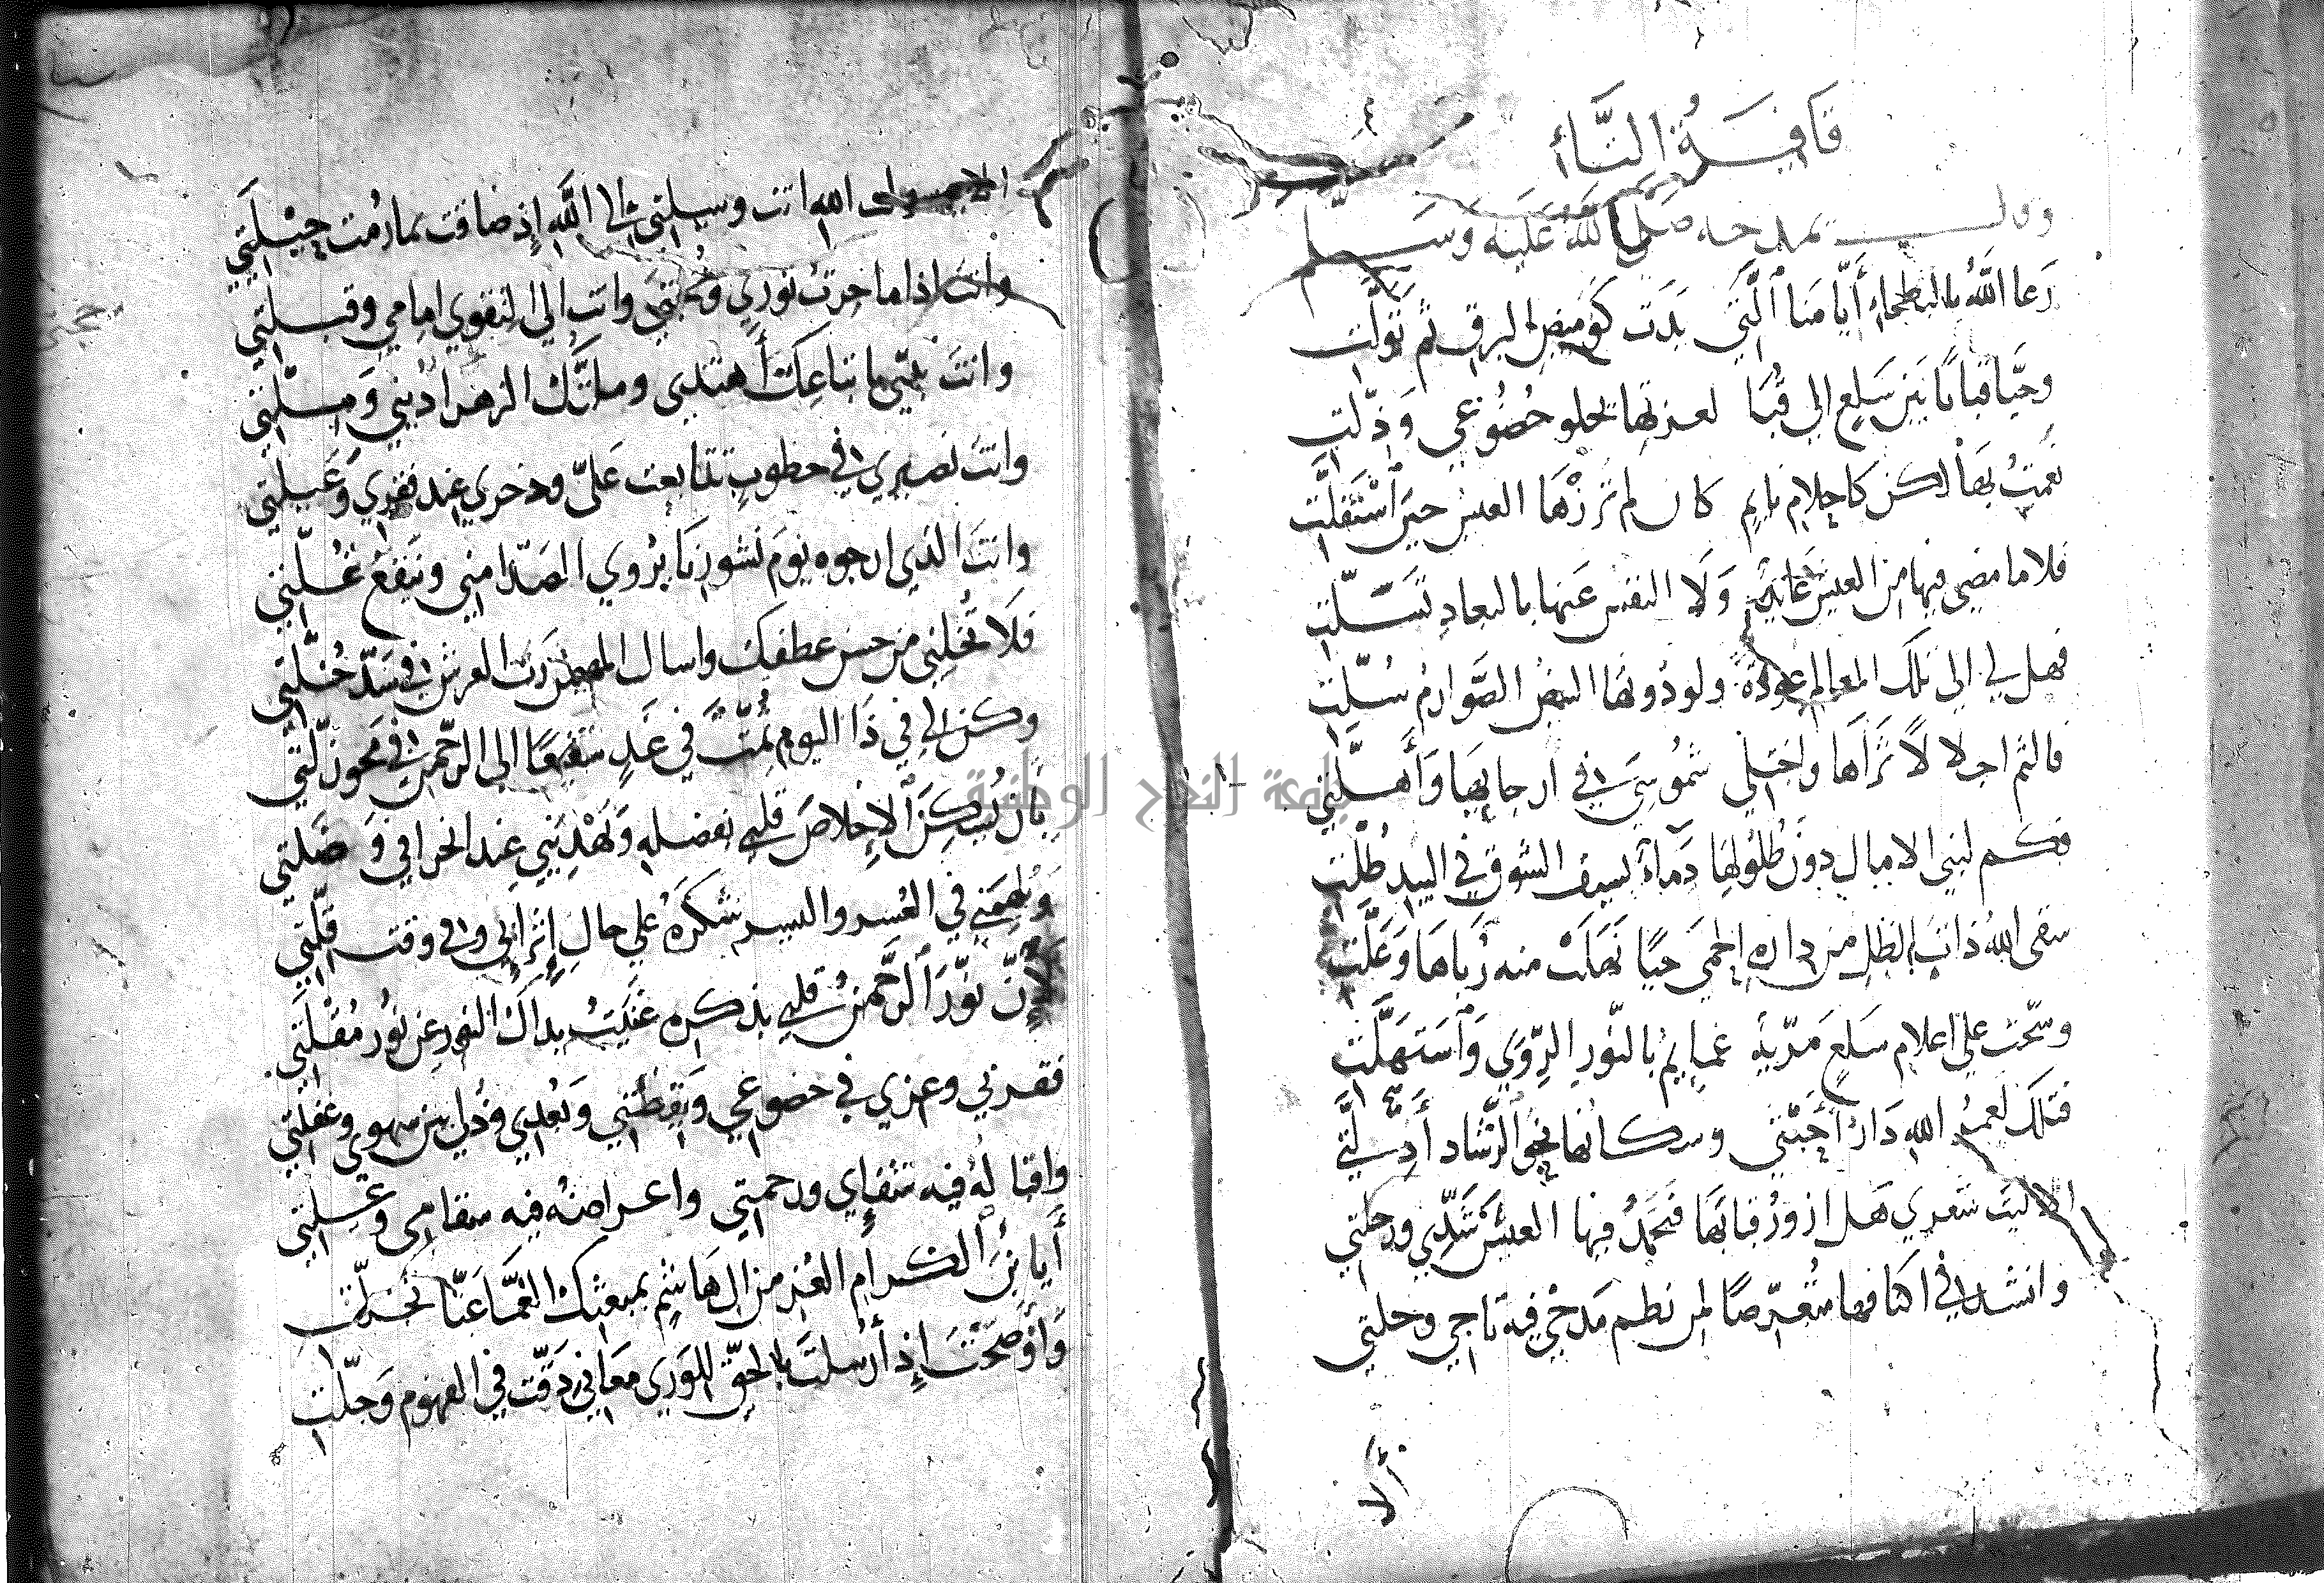 قافية التاء
وقال يمدحه صلى الله عليه وسلم
رعا الله بالبطحاء أيامنا التي بدت كوميض البرق ثم تولت
وحيا قبابا بين سلع إلى قبا لعزتها يحلو خضوعي وذلتي
نعمت بها لكن كاحلام نايم كان لم تزرها العيس حين استقلت
فلا ما مضى فيها من العيش عائد ولا النفس عنها بالبعاد تسلت
فهل لي إلى تلك المعالم عودة ولو دونها البيض الصوارم سلت
فالثم اجلالا ثراها واجتلي شموسي في ارجايها وأهلتي
فكم لبني الامال دون طلولها دماء بسيف الشوق في البيد طلت
سقى الله ذات الظل من دارة الحمى حيا نهلت منه رباها وعلت
وسحت على اعلام سلع مربة غمايم بالنور الروي واستهلت
فتلك لعمر الله دار أحبتي وسكانها نحو الرشاد أدلتي
الا ليت شعري هل ازور قبابها فتحمد فيها العيس شدي ورحلتي
وانشد في اكنافها متعرضا لمن نظم مدحي فيه تاجي وحلتي
ألا
الا يا رسول الله انت وسيلتي إلى الله إذ ضاقت بما رمت حيلتي
وأنت اذا ما حرت نوري وحجتي وانت إلى التقوى امامي وقبلتي
وانت نبيي باتباعك أهتدي وملتك الزهرا ديني وملتي
وانت نصيري في خطوب تتابعت علي وذخري عند فقري وعيلتي
وانت الذي ارجوه يوم نشورنا يروي الصدا مني وينقع غلتي
فلا تخلني من حسن عطفك واسال المهيمن رب العرش في سد خلتي
وكن لي في ذا اليوم ثمت في غد شفيعا إلى الرحمن في محو زلتي
بان يسكن الإخلاص قلبي بفضله ويهديني عند انحرافي وضلتي
ويلهمني في العسر واليسر شكره على حال إثرائي وفي وقت قلتي
لإن نور الرحمن قلبي بذكره غنيت بذاك النور عن نور مقلتي
فقربي وعزي في خضوعي ويقظتي وبعدي وذلي بين سهوي وغفلتي
واقباله فيه شفاي ورحمتي واعراضه فيه سقامي وعلتي
أيا بن الكرام الغر من ال هاشم بمبعثك الغماء عنا تجلت
وأوضحت إذ أرسلت بالحق للورى معاني دقت في الفهوم وجلت
جامعة النجاح الوطنية